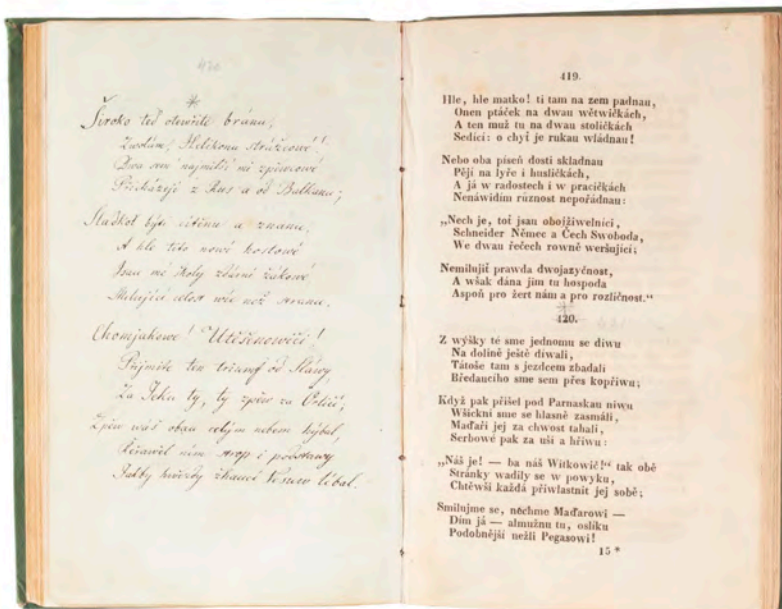 420.
*
Široko teď otevřete bránu,
Zwolám, Helikonu strážcowé!
Dwa sem najmilší mi zpěwcowé
Přicházejí z Rus a od Balkanu;
Sladkoť býti ctěnu a znanu,
A hle tito nowí hostowé
Jsau mé školy zdárné žákowé
Milující celost wíc než stranu.
Chomjakowe! Utěšenowiči!
Přijmite ten triumf od Sláwy,
Za Jeku ty, ty zpěw za Orličí;
Zpěw wáš obau celým nebem hýbal,
ním strop i podstawy
Jakby hwězdy žhaucí líbal.
419.
Hle, hle matko! ti tam na zem padnau,
Onen ptáček na dwau wětwičkách,
A ten muž tu na dwau stoličkách
Sedící: o chyť je rukau wládnau!
Nebo oba píseň dosti skladnau
Pějí na lyře i husličkách,
A já w radostech i w pracičkách
Nenáwidím různost nepořádnau:
„Nech je, toť jsau obojžiwelníci,
Schneider Němec a Čech Swoboda,
We dwau řečech rowně weršující;
Nemilujiť prawda dwojazyčnost,
A wšak dána jim tu hospoda
Aspoň pro žert nám a pro rozličnost.“
*
420.
Z wýšky té sme jednomu se diwu
Na dolině ještě díwali,
Tátoše tam s jezdcem zbadali
Břědaucího sme sem přes kopřiwu;
Když pak přišel pod Parnaskau niwu
Wšickni sme se hlasně zasmáli,
Maďaři jej za chwost tahali,
Serbowé pak za uši a hřiwu:
„Náš je! — ba náš Witkowič!“ tak obě
Stránky wadily se w powyku,
Chtěwší každá přiwlastnit jej sobě;
Smilujme se, nechme Maďarowi —
Dím já — almužnu tu, oslíku
Podobnější nežli Pegasowi!
15 *